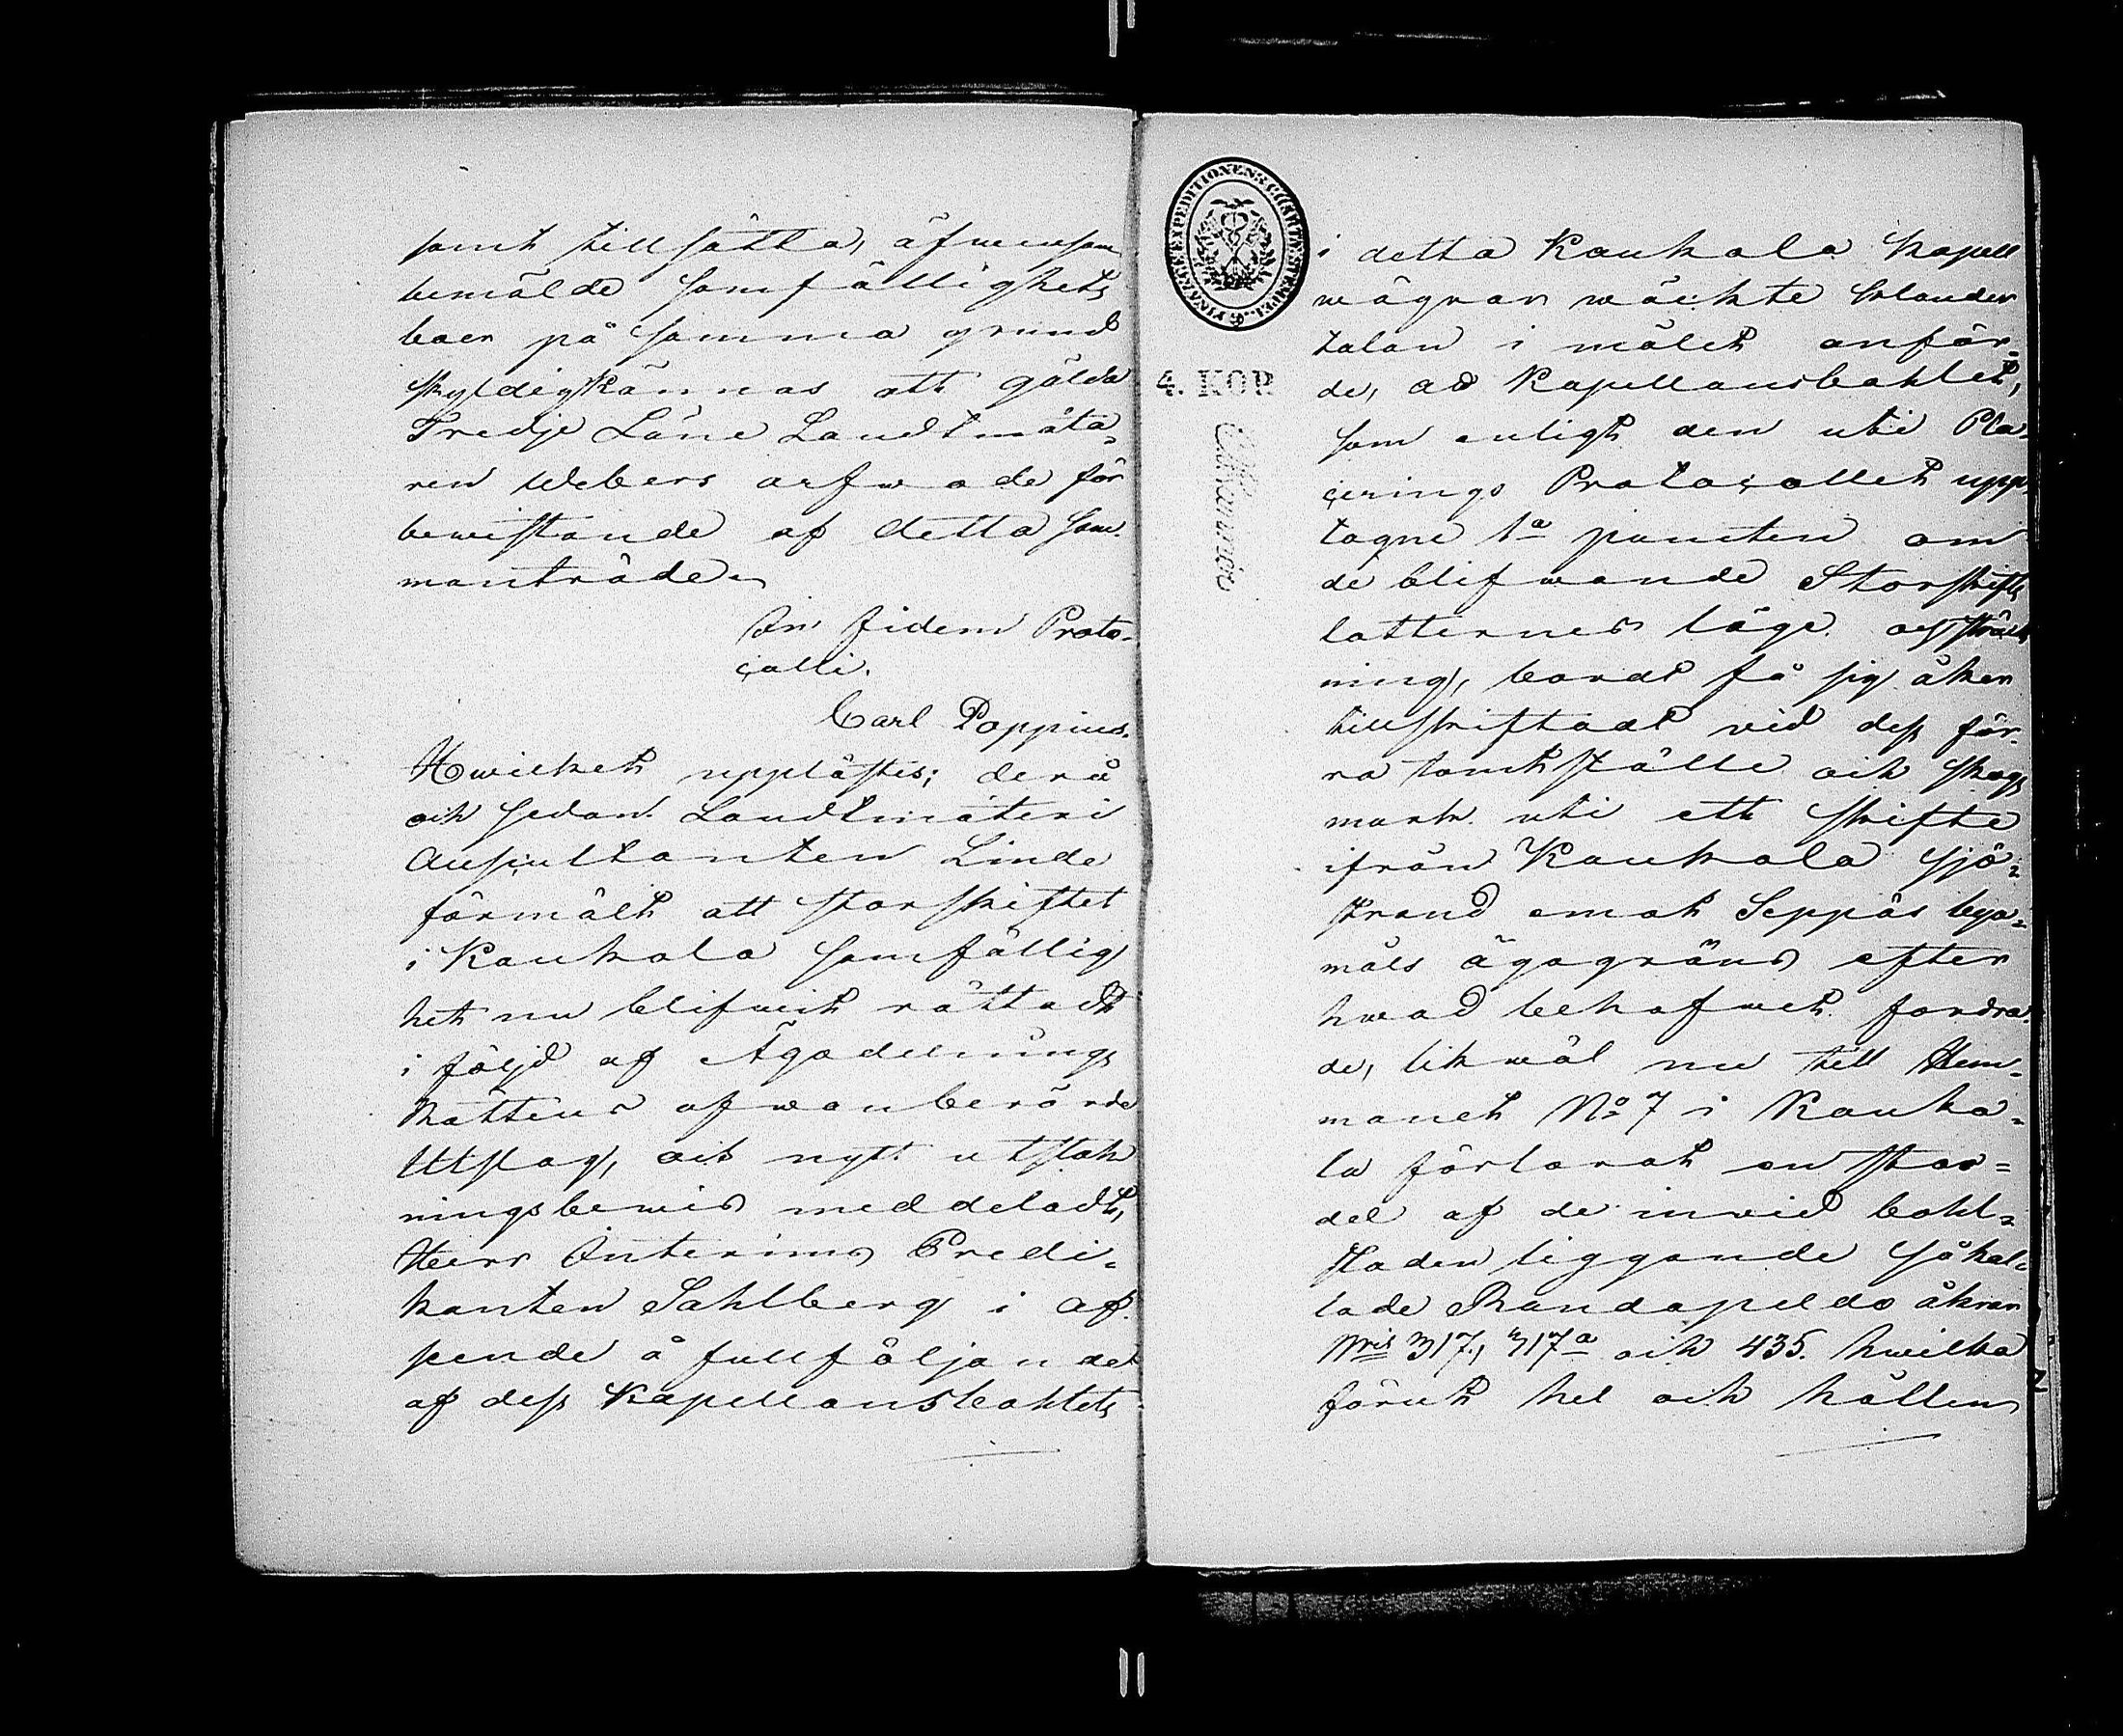 samt tillsätta, äfwensom
bemälde samfällighets
boer på samma grund
skyldig kännas att gälda
Tredje Läne Landtmäta-
ren Webers arfwode för
bewistande af detta sam-
manträde.
In fidem Proto-
colli.
Carl Poppius.
Hwilket upplästes; derå
och sedan Landtmäteri
Auscultanten Linde
förmält att storskiftet
i Kaukola samfällig
het nu blifwit rättadt
i följd af Ägodelnings
Rättens ofwanberörde
Utslag, och nytt utstak
ningsbewis meddeladt,
Herr Interims Predi-
kanten Sahlberg i af-
seende å fullföljandet
af dess Kapellansbohlets
FINSKA EXPEDITIONENS CHARTÆ STEMPEL
4. KOP.
i detta Kaukola kapell
wägnar wäckte
talan i målet anför-
de, at Kapellansbohlet,
som enligt den uti Pla-
cerings Protocollet upp-
tagne 1a puncten om
de blifwande Storskifts
lotternes läge och sträck
ning, bordt få sig åker
tillskiftadt vid dess för-
ra tomtställe och skogs
mark uti ett skifte
ifrån Kaukola sjö-
strand emot Seppäs bya-
måls ägogräns efter
hwad behofwet fordra-
de, likwäl nu till Hem-
manet No 7 i Kauko-
la förlorat en stor-
del af de inwid bohl-
staden liggande så kal-
lade Randapeldo åkrar
Nris 317, 317a och 435. hwilka
förut hel och hållen